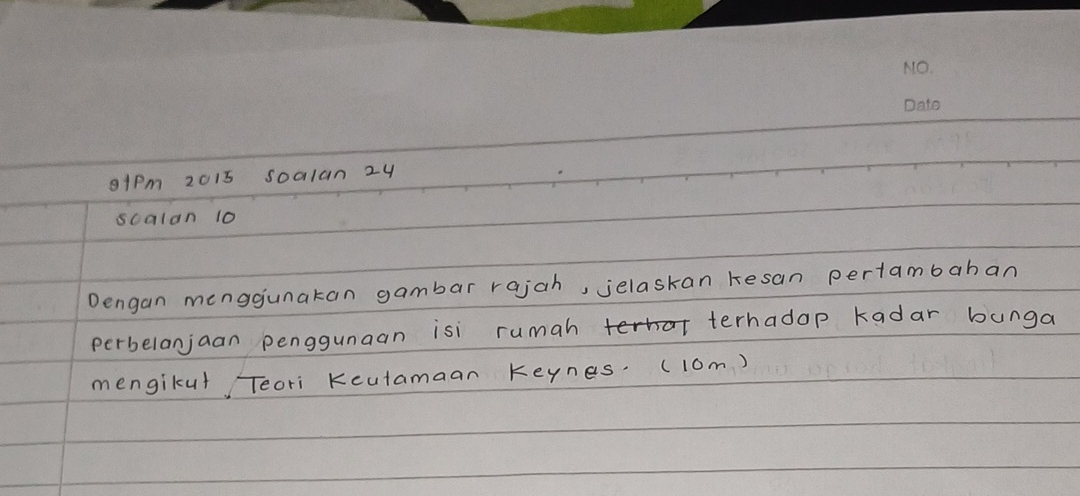 NO.
Date
stpm 2015 soalan 24
soalan 10
Dengan menggunakan gambar rajah, jelaskan kesan pertambahan
perbelanjaan penggunaan isi rumah terhat terhadap kadar bunga
mengikut Teori Keutamaan Keynes. (10m)